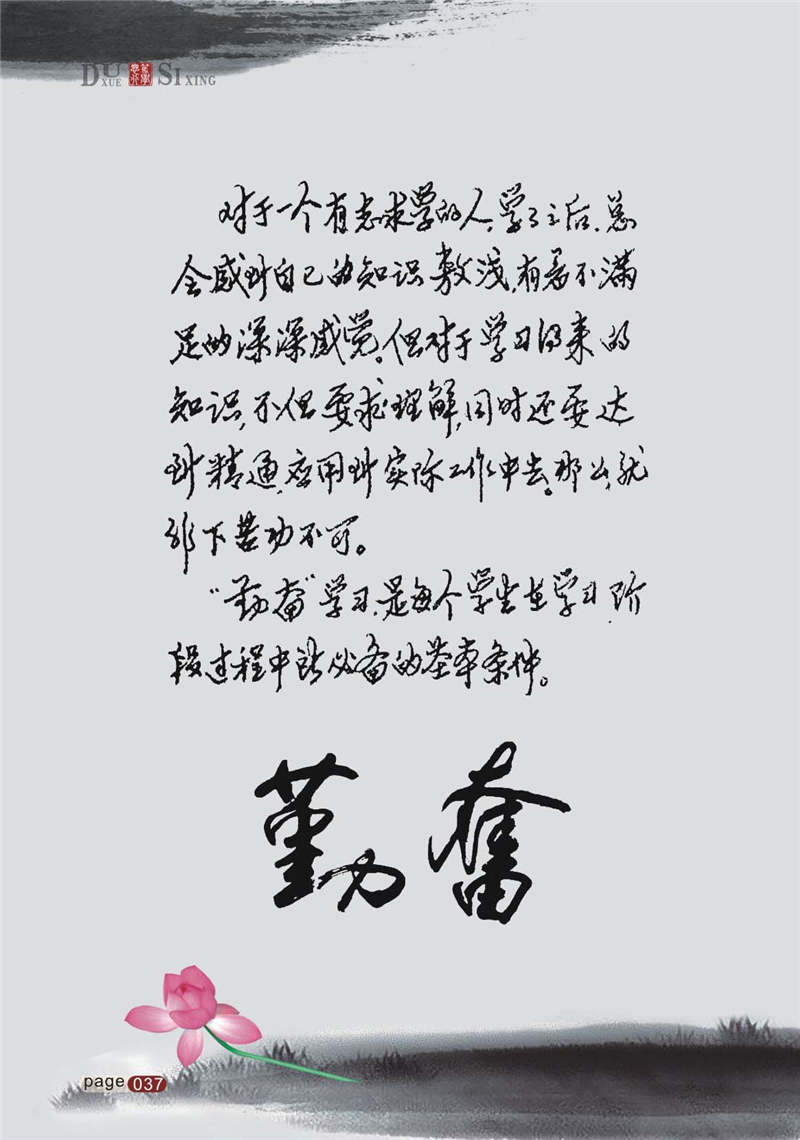 DUXUE SIXING
对于一个有志求学的人，学了之后，总
会感到自己的知识敷浅，有着不满
足的深深感觉。但对于学习得来的
知识，不但要求理解，同时还要达
到精通，应用到实际工作中去。那么，就
非下苦功不可。
“勤奋”学习，是每个学生在学习阶
段过程中所必备的基本条件。
勤奮
page 037